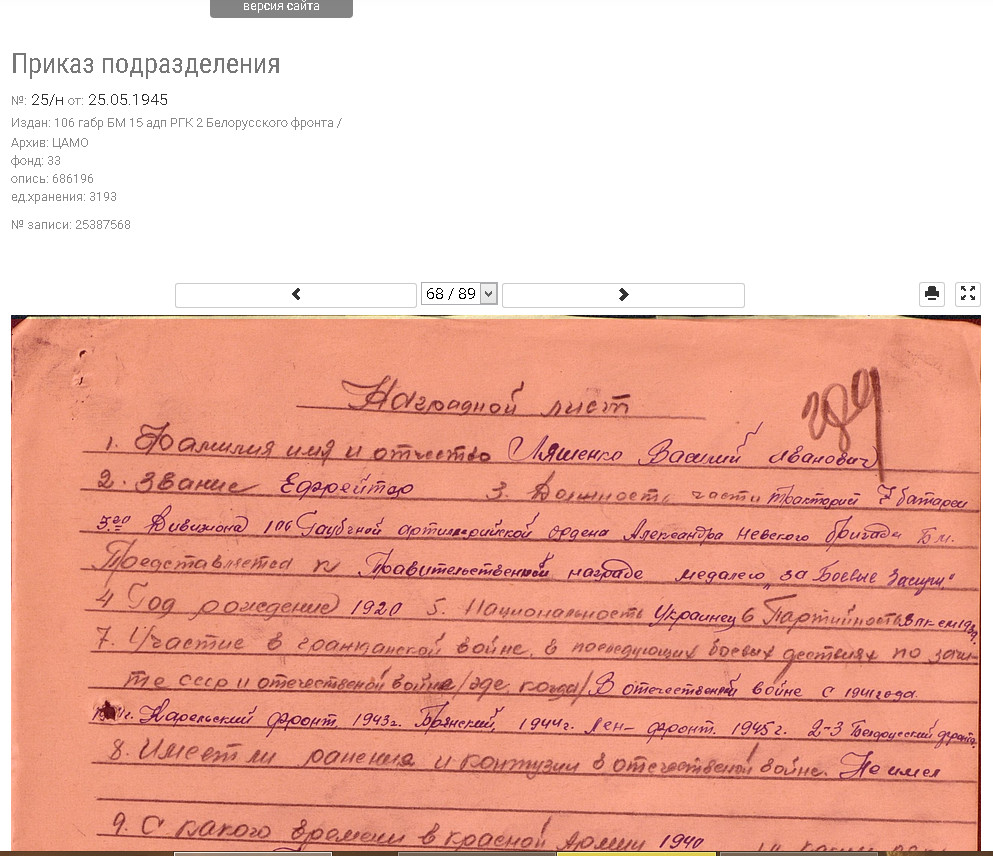 версия сайта
Приказ подразделения
№: 25/н от: 25.05.1945
Издан: 106 габр БМ 15 адп РГК 2 Белорусского фронта /
Архив: ЦАМО
фонд: 33
опись: 686196
ед.хранения: 3193
№ записи: 25387568
68 / 89
Наградной лист
1. Фамилия имя и отчество Ляшенко Василий Иванович
2. Звание Ефрейтор 3. Должность части Тракторист 7 батареи
3го Дивизиона 106 Гаубичной артилерийской ордена Александра Невского бригады Б.м.
Представляется к Правительственной награде медалею „за Боевые Заслуги"
4 Год рождения 1920 5. Национальность Украинец 6 Партийность
7. Участие в гражданской войне, в последующих боевых действиях по защи-
те ссср и отечественной войне /где, когда/ В отечественной войне с 1941 года.
Карельский фронт. 1943г. Брянский, 1944г. Лен- фронт. 1945г. 2-3 Белорусский фронта.
8. Имеет ли ранения и контузии в отечественной войне. Не имел
9. С какого времени в красной Армии 1940